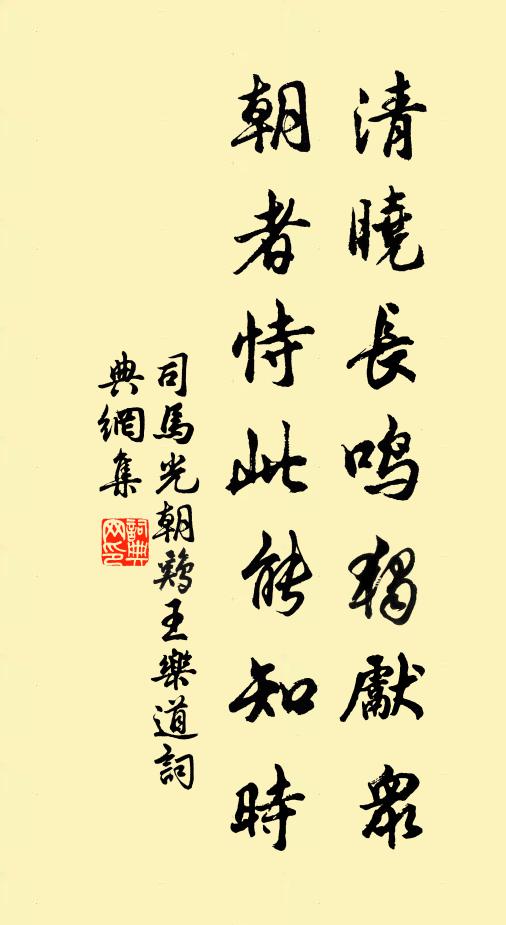 清曉長鳴獨獻眾
朝者恃此能知時
司馬光朝鷄王樂道詞
典網集
詞典
网印